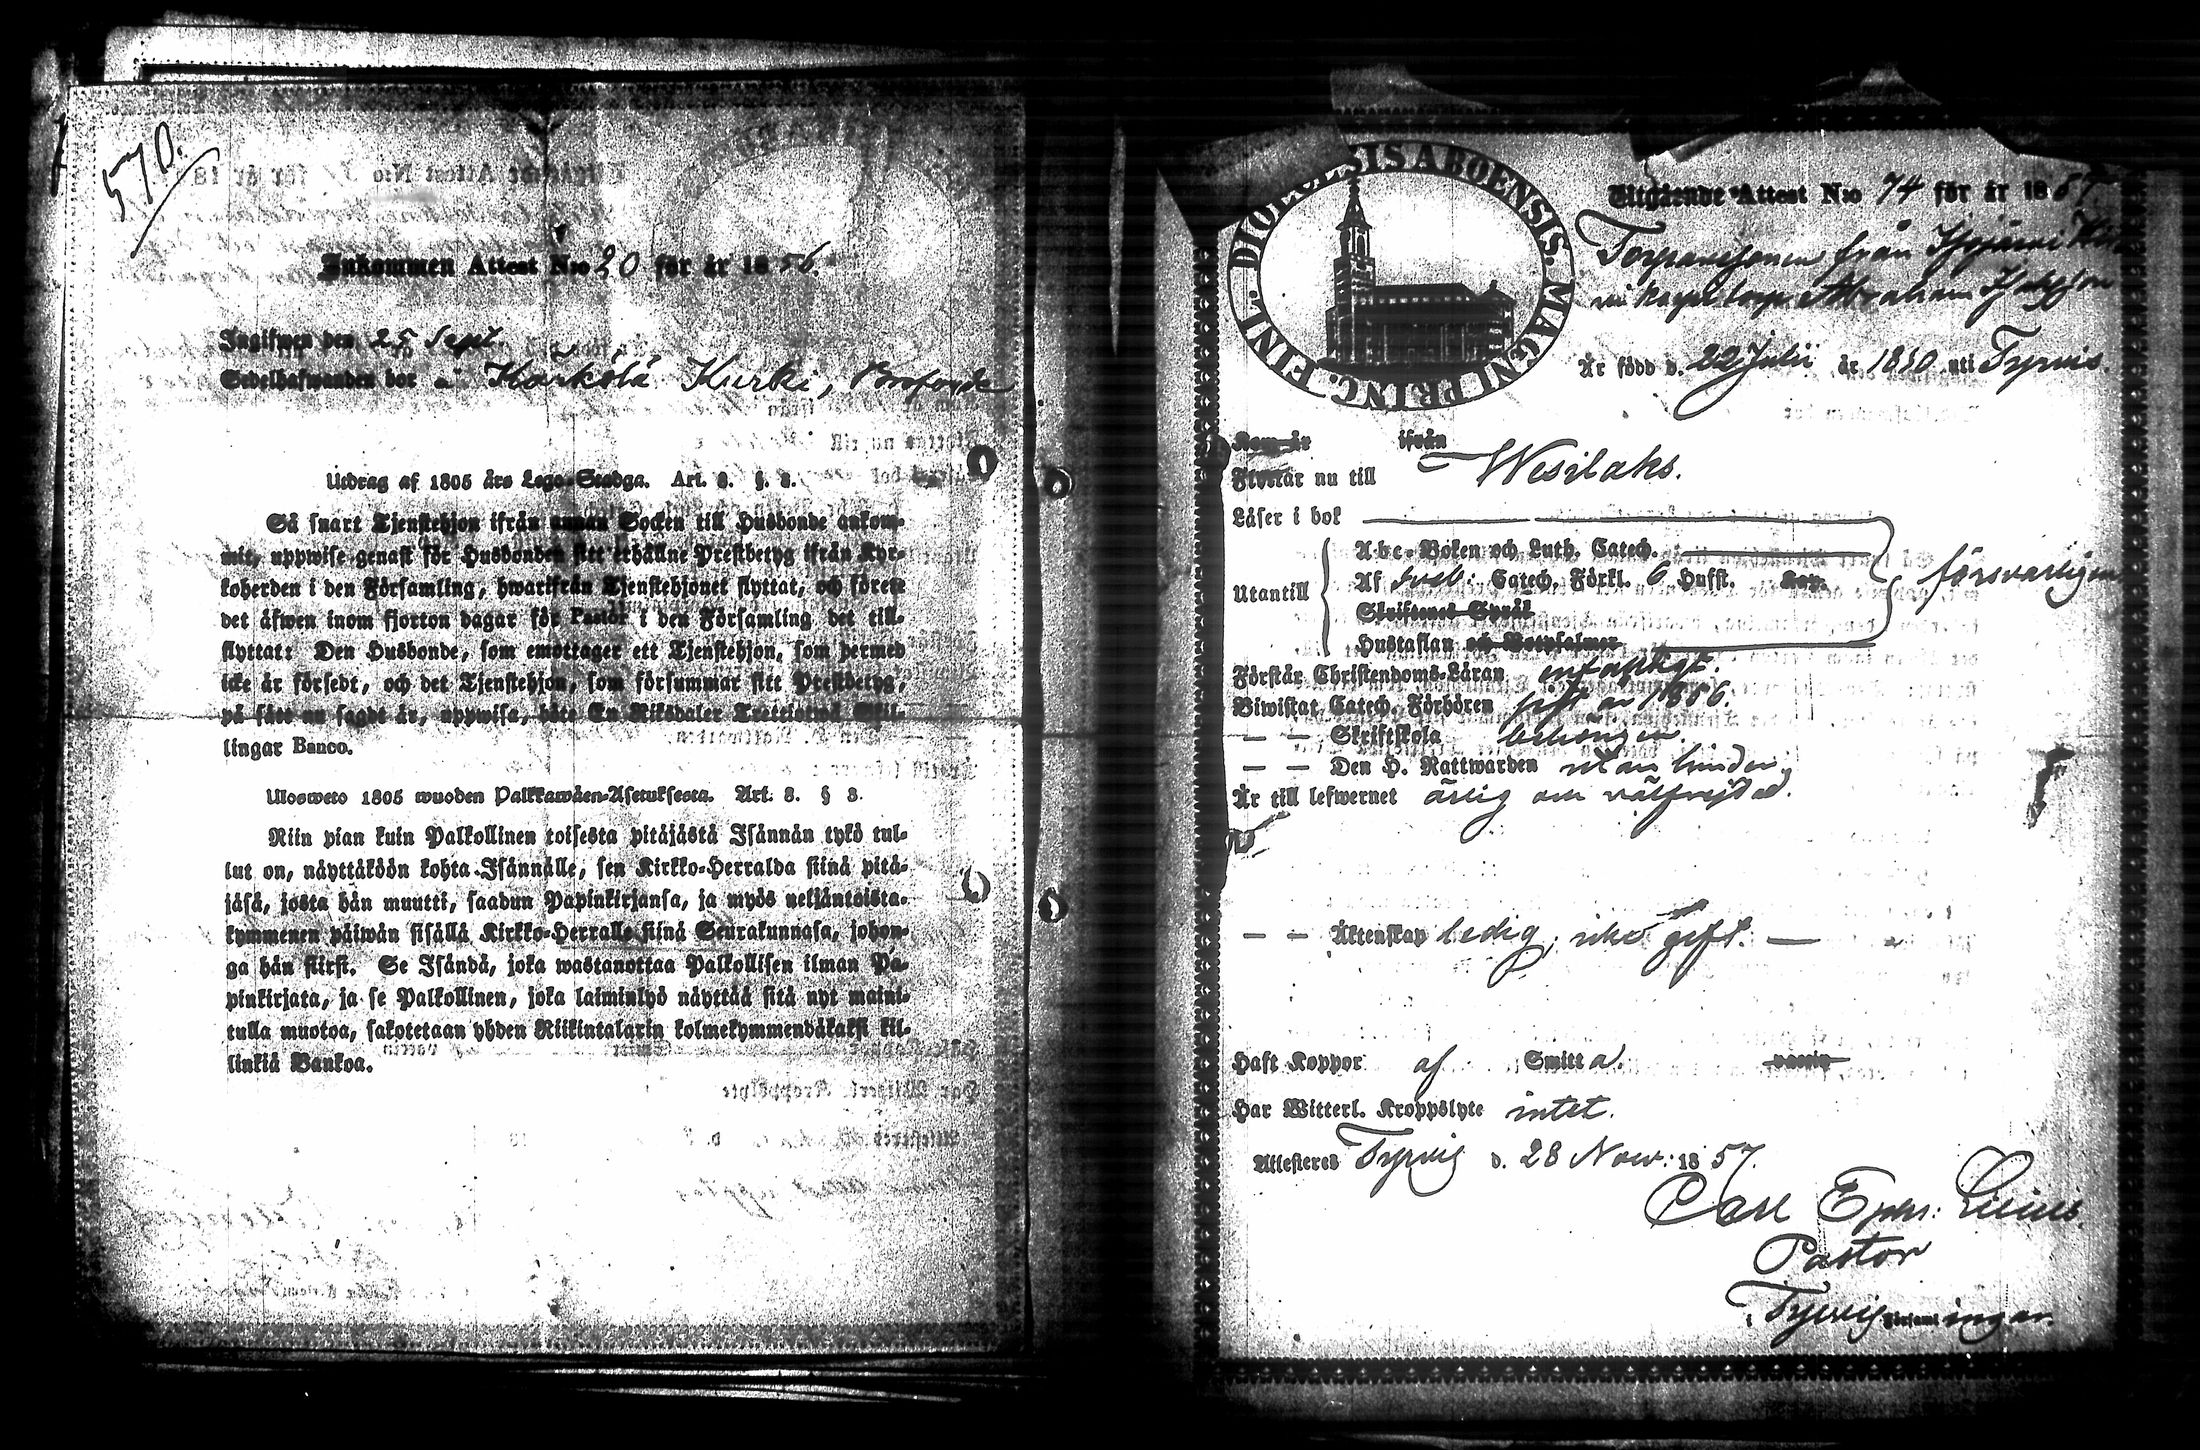 570.
Inkommen Attest N:o 20 för år 1856.
Ingifwen den 25 Sept.
Sedelhafwanden bor Karkola Kurki,
Utdrag af 1805 års Lego-Stadga. Art. 8. §. 3.
Så snart Tjenstehjon ifrån annan Socken till Husbonde ankom-
mit, uppwise genast för Husbonden sitt erhållne Prestbetyg ifrån Kyr-
koherden i den Församling, hwarifrån Tjenstehjonet flyttat, och förete
det äfwen inom fjorton dagar för Pastor i den Församling det till-
flyttat: Den Husbonde, som emottager ett Tjenstehjon, som hermed
icke är försedt, och det Tjenstehjon, som försummar sitt Prestbetyg,
på sätt nu sagdt är, uppwisa, böte En Riksdaler Trettiotwå Skil-
lingar Banco.
Ulosweto 1805 wuoden Palkkawäen-Asetuksesta. Art. 8. § 3.
Niin pian kuin Palkollinen toisesta pitäjästä Isännän tykö tul-
lut on, näyttäköön kohta Isännälle, sen Kirkko-Herralda siinä pitä-
jäsä, josta hän muutti, saadun Papinkirjansa, ja myös neljäntoista-
kymmenen päiwän sisällä Kirkko-Herralle siinä Seurakunnasa, johon-
ga hän siirsi. Se Isändä, joka wastanottaa Palkollisen ilman Pa-
pinkirjata, ja se Palkollinen, joka laiminlyö näyttää sitä nyt maini-
tulla muotoa, sakotetaan yhden Riikintalarin kolmekymmendäkaksi kil-
linkiä Bankoa.
DIOECESIS ABOENSIS. MAGNI PRINC. FINL.
Utgående Attest N:o 74 för år 1857.
Torparesonen från
torp. Abraham
Är född d. 22 Julii år 1830 uti Tyrvis.
Kom år ifrån
Flyttar nu till Wesilaks.
Läser i bok
Utantill
Abc-Boken och Luth. Catech.
Af Sveb. Catech. Förkl. 6 Hufst. Kap.
försvarligen
Skriftenes Språk
Hustaflan och Botpsalmer
Förstår Christendoms-Läran enfaldigt.
Biwistat Catech. Förhören sist år 1856.
— — Skriftskola behörigen.
— — Den H. Nattwarden utan hinder,
Är till lefwernet ärlig och välfrejdad.
— — Äktenskap ledig, icke gift. —
Haft Koppor af Smitta. vaccin
Har Witterl. Kroppslyte intet.
Attesteras Tyrvis d. 28 Nov: 1857.
Carl Ephr: Lilius.
Pastor
i Tyrvis Församlingar.